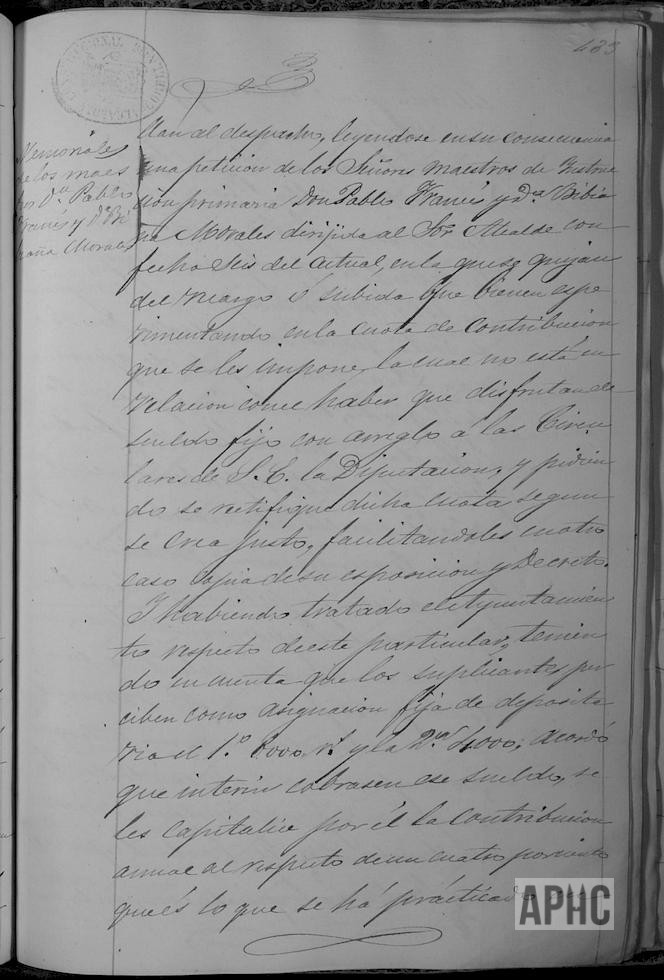 433
Memoriales
de los maes
tros Dn. Pablo
Francés y Dª Bi
biana Morales
dan al despacho, leyendose en su consecuencia
una peticion de los Señores maestros de Instruc
cion primaria Don Pablo Francés y Dª Bibia
na Morales dirijida al Sor Alcalde con
fecha Seis del actual, en la que se quejan
del recargo ó subida que vienen espe
rimentando en la cuota de Contribucion
que se les impone, la cual no está en
relacion con el haber que disfrutan de
sueldo fijo con arreglo a las Circu
lares de S. E. la Diputacion, y pidien
do se rectifique dicha cuota segun
se crea justo, facilitandoles en otro
caso copia de su esposicion y Decreto.
Y habiendo tratado el Ayuntamien
to respecto de este particular, tenien
do en cuenta que los suplicantes per
ciben como asignacion fija de deposita
ria el 1.º 6000 rs. y la 2.ª 4000, acordó
que interin cobrasen ese sueldo, se
les capitalice por él la Contribucion
anual al respecto de un cuatro por ciento
que és lo que se há prácticado
APHC